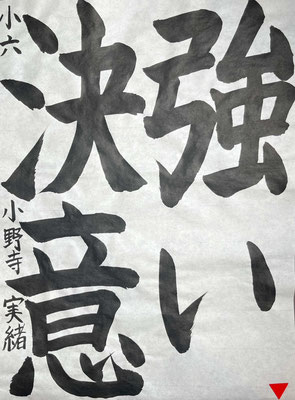 強い
決意
小六
小野寺 実緒